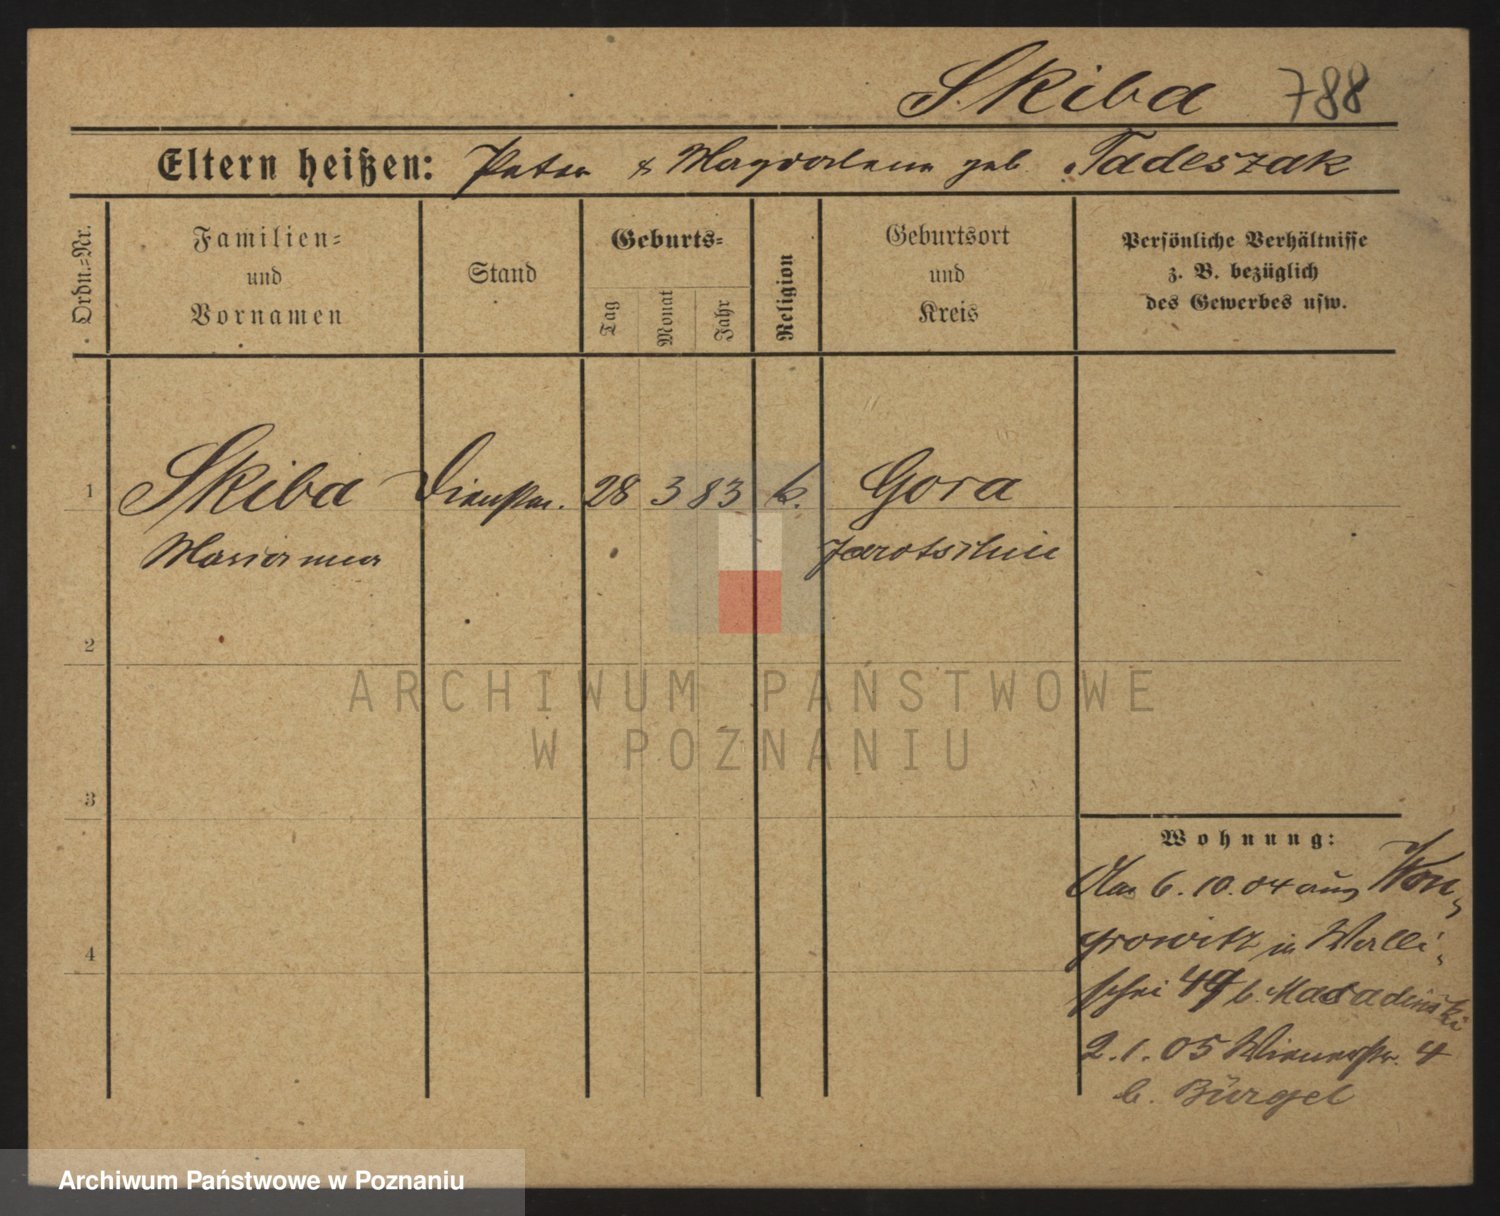 Skiba 788
Eltern heißen: Peter & Magdalena geb. Tadeszak
Ordn.-Nr.
Familien-
und
Vornamen
Stand
Geburts-
Tag
Monat
Jahr
Religion
Geburtsort
und
Kreis
Persönliche Verhältnisse
z. B. bezüglich
des Gewerbes usw.
1 Skiba Dienstm. 28 3 83 k. Gora
Marianna Jarotschin
2
ARCHIWUM PAŃSTWOWE
W POZNANIU
3
Wohnung:
6. 10. 04 aus Won-
growitz in Walli-
schei 49 b.
4
2. 1. 05 Wienerstr. 4
b. Bürgel
Archiwum Państwowe w Poznaniu